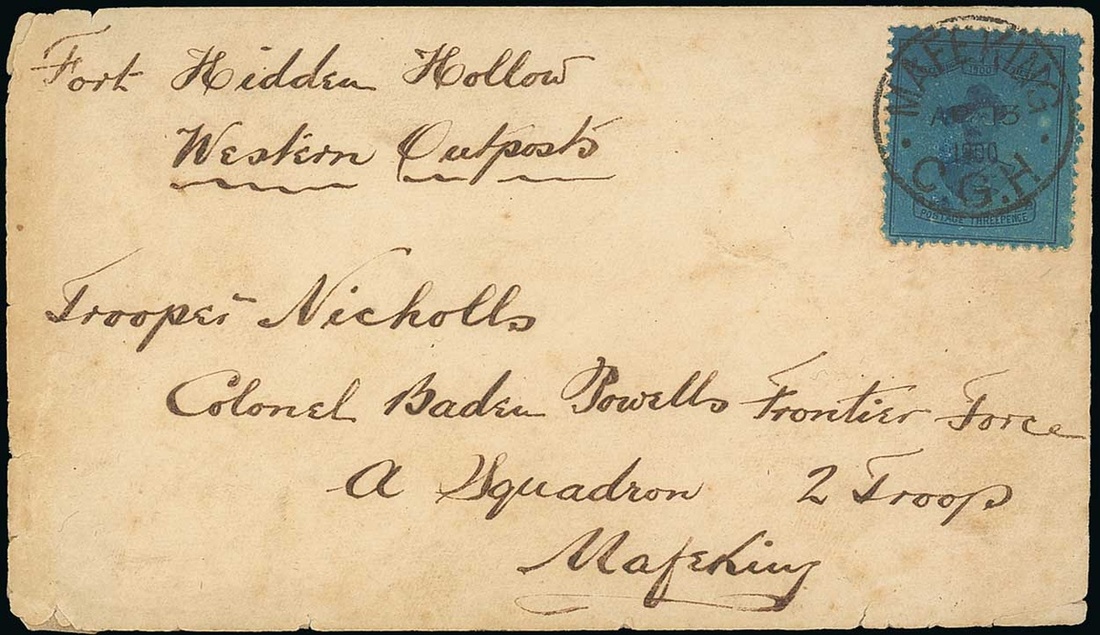 Fort Hidden Hollow
Western Outposts
MAFEKING
1900
AP 13
1900
C.G.H
POSTAGE THREEPENCE
Trooper Nicholls
Colonel Baden Powells Frontier Force
A Squadron 2 Troop
Mafeking